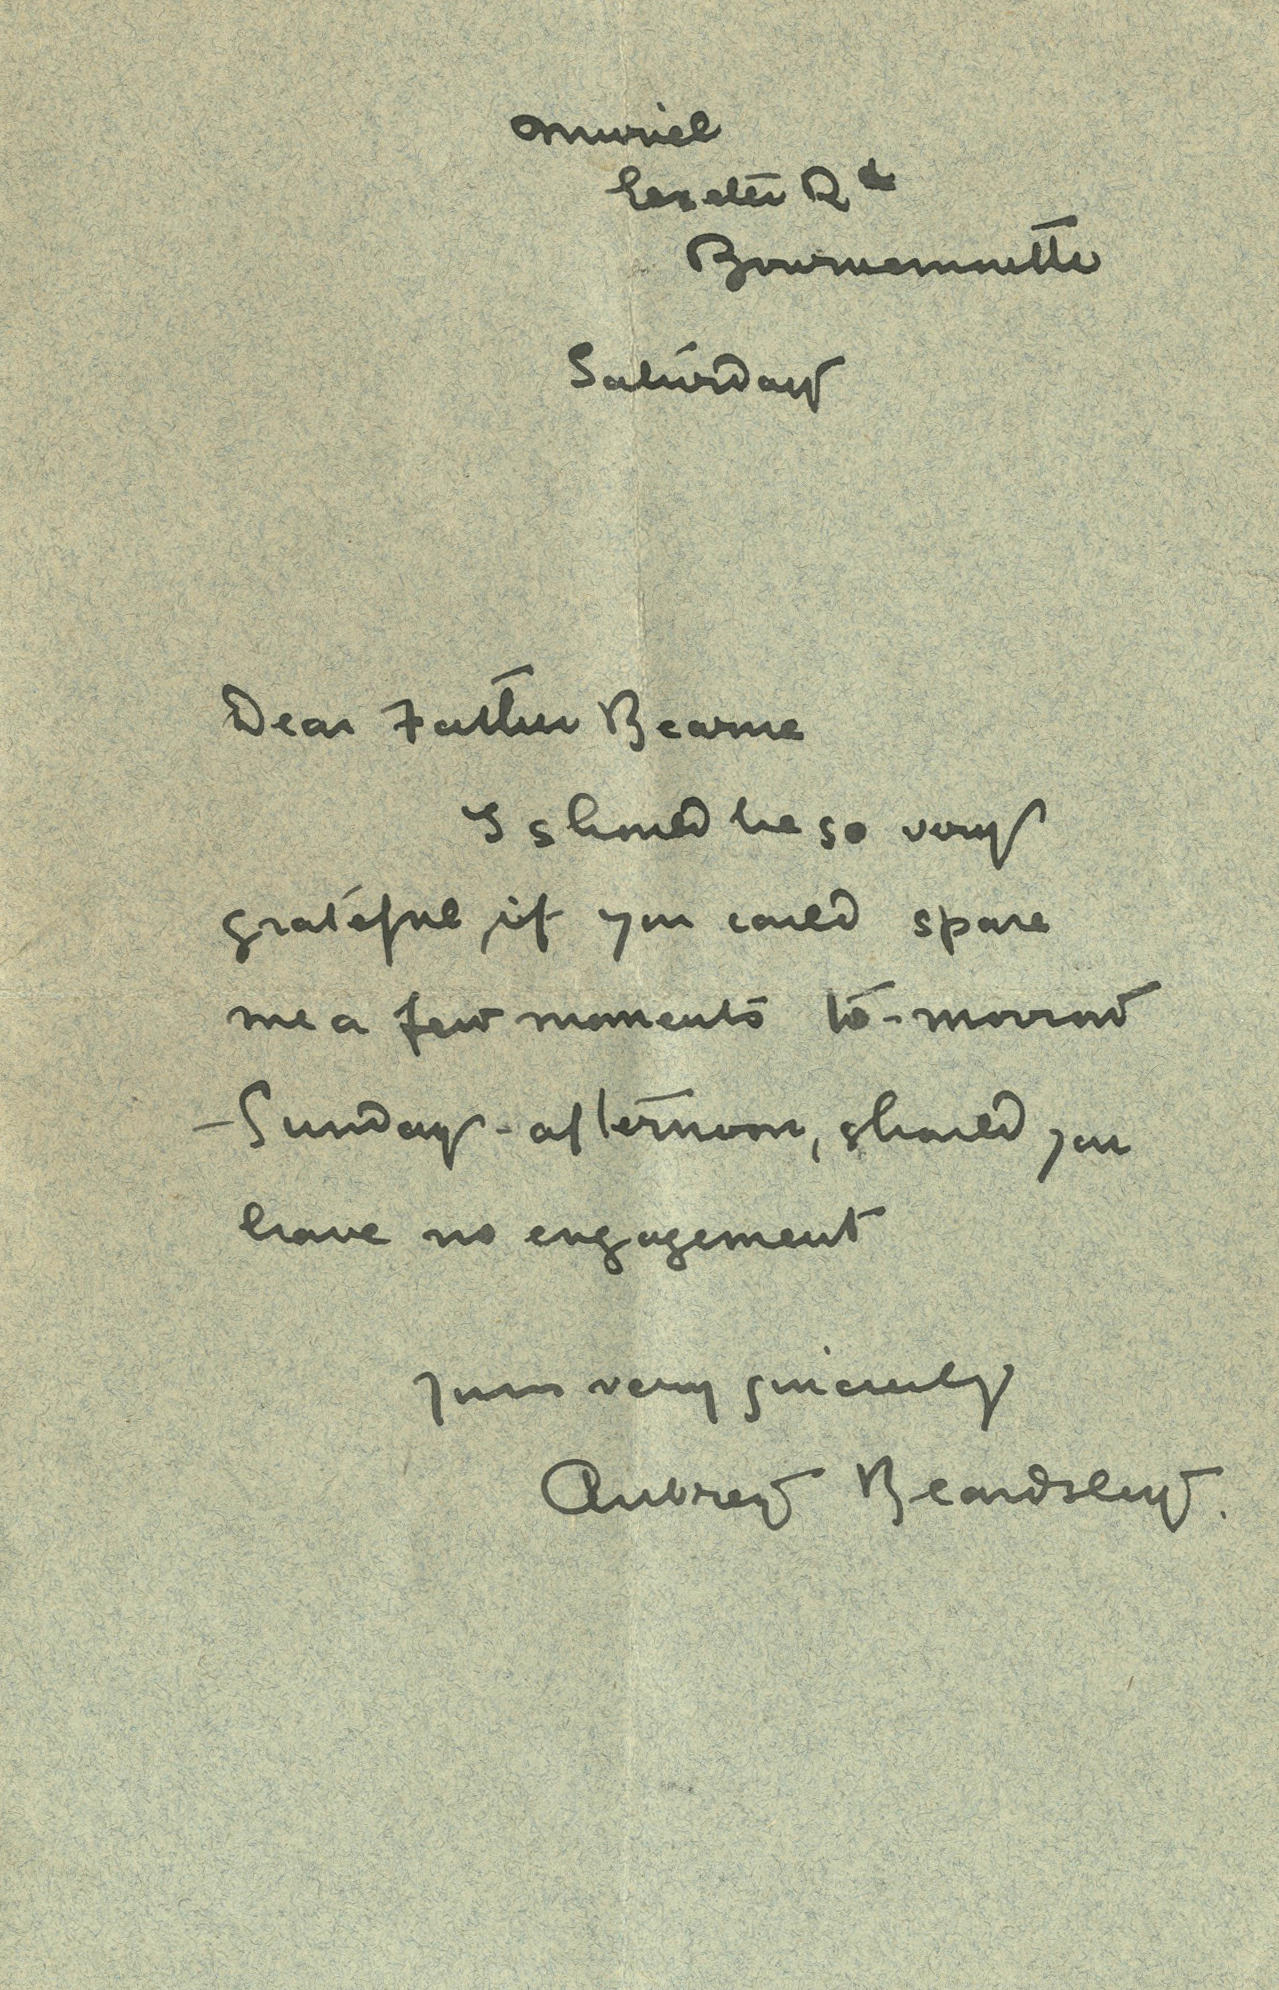 Muriel
Exeter Rd
Bournemouth
Saturday
Dear Father Bearne
I should be so very
grateful if you could spare
me a few moments to-morrow
-Sunday-afternoon, should you
have no engagement
Yours very sincerely
Aubrey Beardsley.